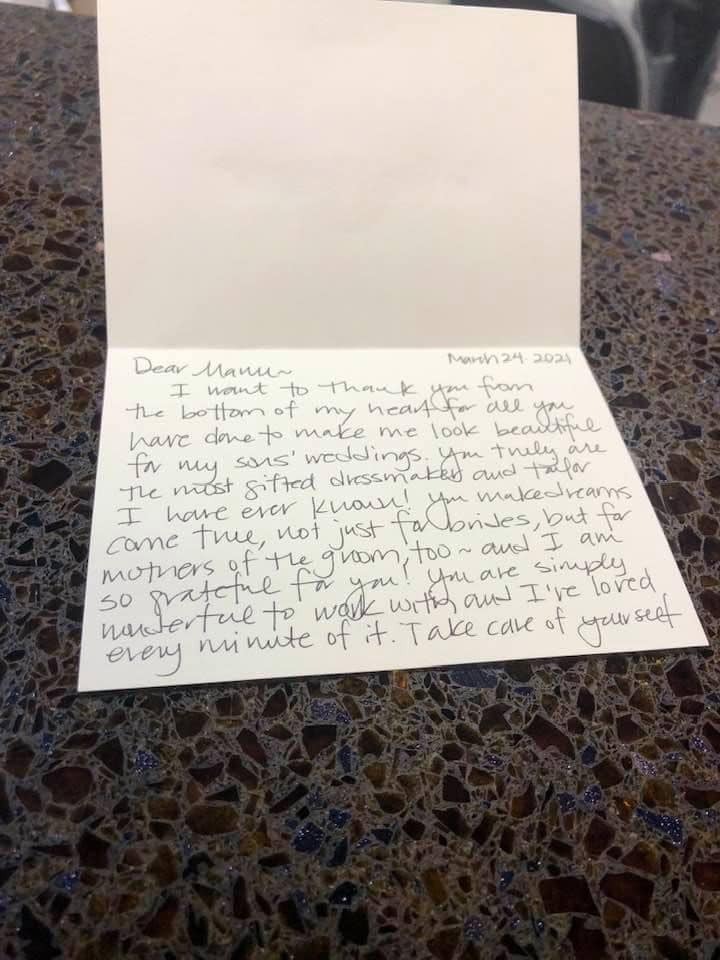 March 24 2021
Dear Manu~
I want to thank you from
the bottom of my heart for all you
have done to make me look beautiful
for my sons' weddings. You truly are
the most gifted dressmaker and tailor
I have ever known! You make dreams
come true, not just for brides, but for
mothers of the groom, too ~ and I am
so grateful for you! You are simply
wonderful to work with, and I've loved
every minute of it. Take care of yourself